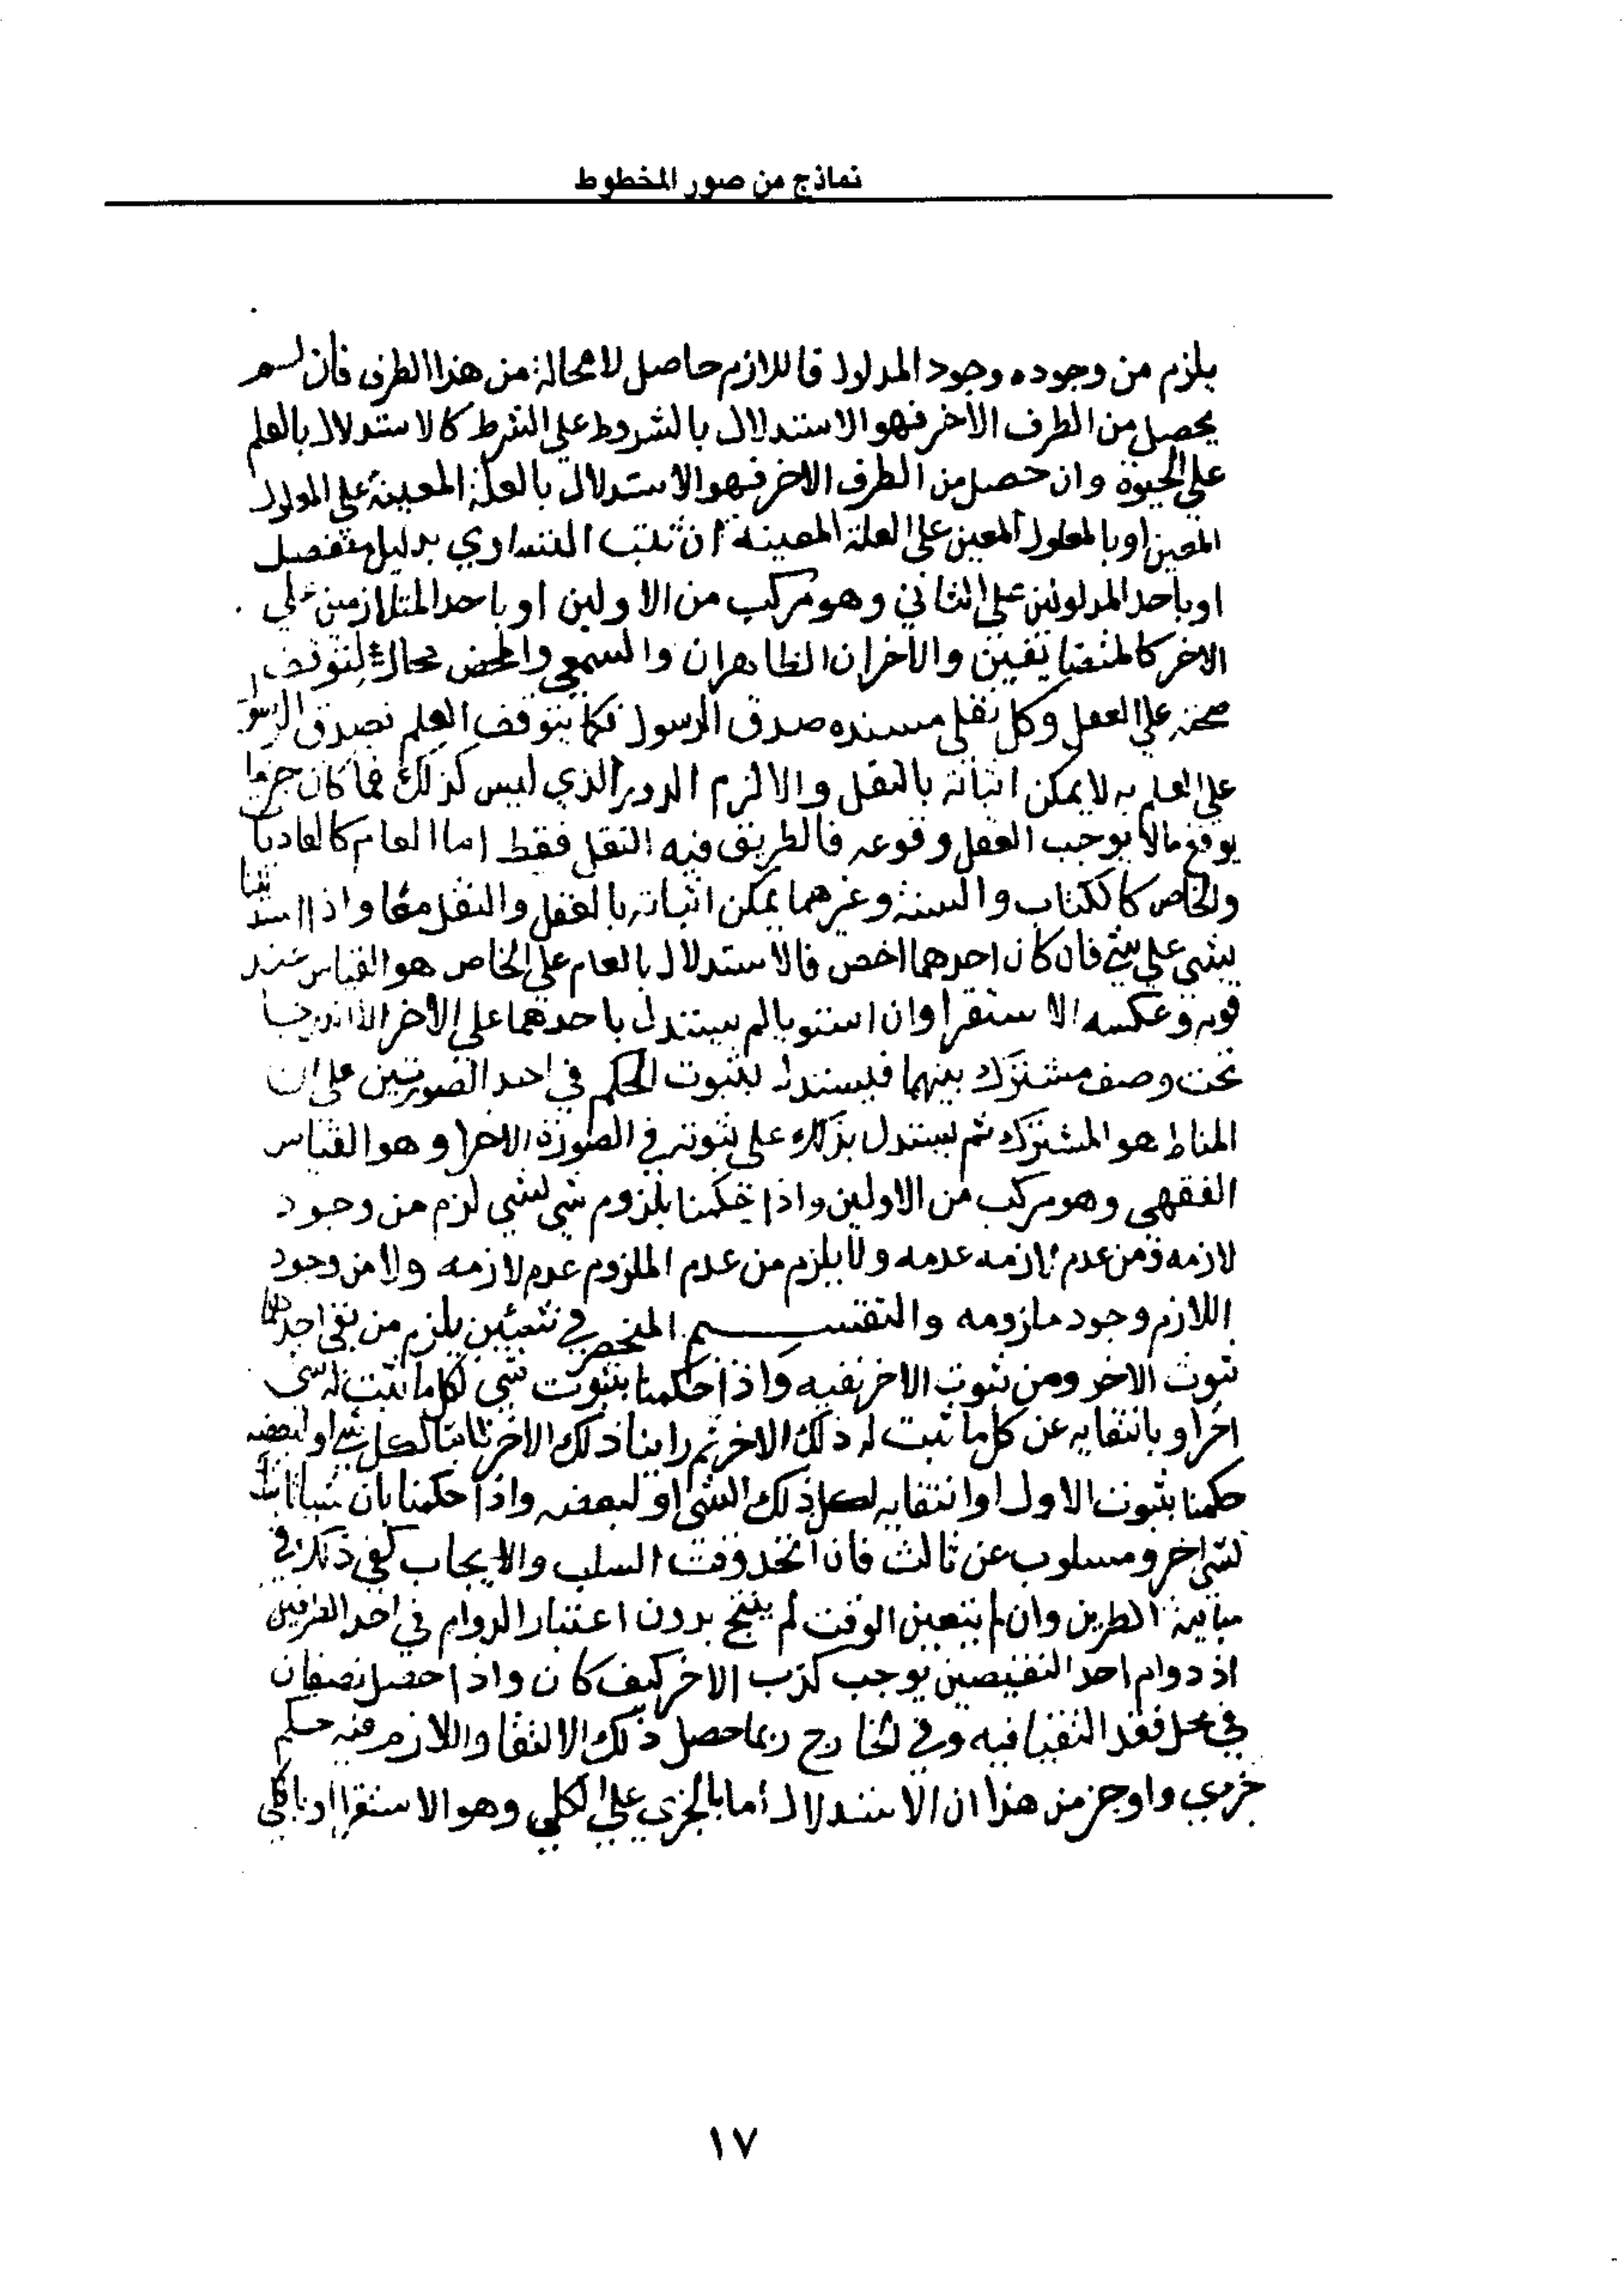 نماذج من صور المخطوط
يلزم من وجوده وجود المدلول فاللازم حاصل لا محالة من هذا الطرف فان لسم
يحصل من الطرف الاخر فهو الاستدلال بالشروط على الشرط كالاستدلال بالعلم
على الحيوة وان حصل من الطرف الاخر فهو الاستدلال بالعلة المعينة على المعلول
المعين او بالمعلول المعين على العلة المعينة ان ثبت التساوي بدليل منفصل
او باحد المدلولين على الثاني وهو مركب من الاولين او باحد المتلازمين على
الاخر كالمتضايفين والاخران الظاهران والسمعي والمحض محال لتوقف
صحته على العقل وكل نقلي مسنده صدق الرسول فكما يتوقف العلم بصدق الرسول
على العلم به لا يمكن اثباته بالنقل والا لزم الدور الذي ليس كذلك فما كان جزما
بوقوع مالا يوجب العقل وقوعه فالطريق فيه النقل فقط اما العام كالعاديات
والخاص كالكتاب والسنة وغيرهما يمكن اثباته بالعقل والنقل معا واذا استدللنا
بشي على شي فان كان احدهما اخص فالاستدلال بالعام على الخاص هو القياس عند
قوم وعكسه الاستقرا وان استويا لم يستدل باحدهما على الاخر الا اذا اندرجا
تحت وصف مشترك بينهما فيستدل بثبوت الحكم في احد الصورتين على ان
المناط هو المشترك ثم يستدل بذلك على ثبوته في الصورة الاخرا وهو القياس
الفقهي وهو مركب من الاولين واذا حكمنا بلزوم شي لشي لزم من وجود
لازمه ومن عدم لازمه عدمه ولا يلزم من عدم الملزوم عدم لازمه ولا من وجود
اللازم وجود ملزومه والتقسيم المنحصر في شيئين يلزم من نفي احدهما
ثبوت الاخر ومن ثبوت الاخر نفيه واذا حكمنا بثبوت شي لكل ما ثبت له شي
اخر او بانتفايه عن كل ما ثبت له ذلك الاخر ثم راينا ذلك الاخر ثابتا لكل شي او لبعضه
حكمنا بثبوت الاول او انتفايه لكل ذلك الشي او لبعضه واذا حكمنا بان شيا ثابت
لشي اخر ومسلوب عن ثالث فان اتحد وقت السلب والايجاب كفى ذلك في
مباينة الطرفين وان لم يتعين الوقت لم ينتج بدون اعتبار الدوام في احد الطرفين
اذ دوام احد النقيضين يوجب كذب الاخر كيف كان واذا حصل وصفان
في محل فقد التقيا فيه وفي الخارج ربما حصل ذلك الالتقا واللازم منه حكم
جزءي واوجز من هذا ان الاستدلال اما بالجزي على الكلي وهو الاستقرا او بالكلي
١٧